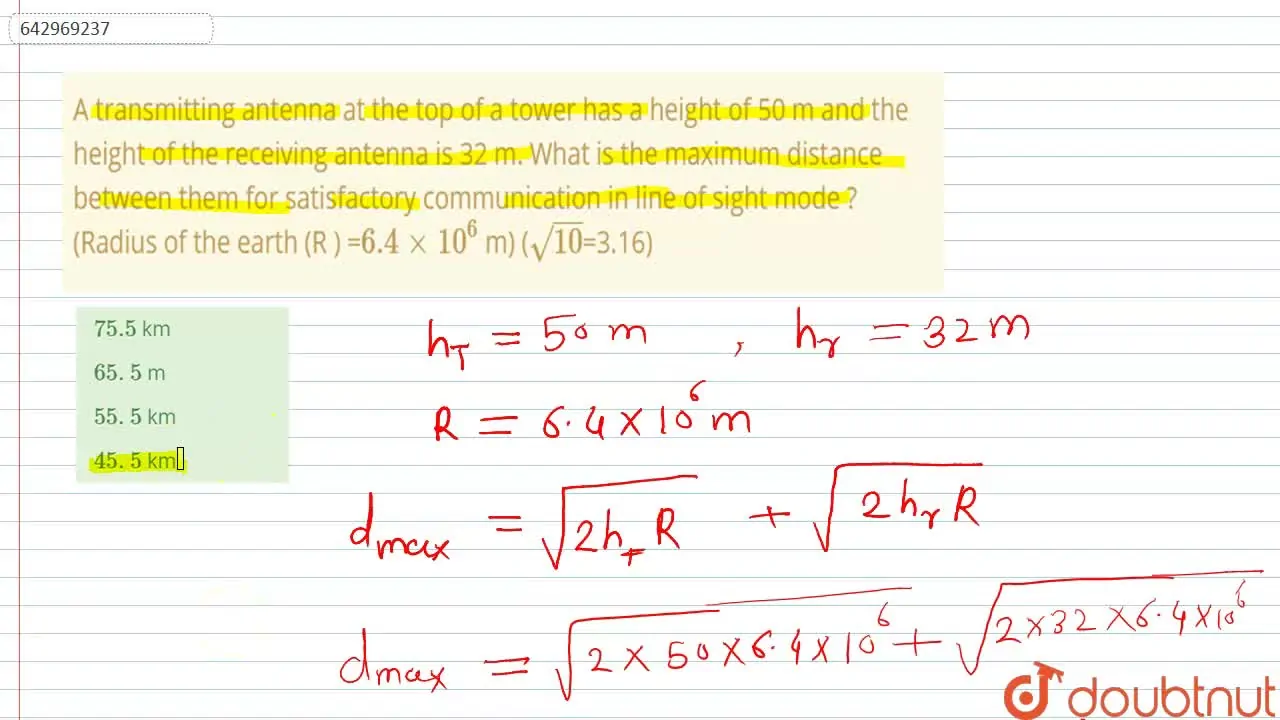 642969237
A transmitting antenna at the top of a tower has a height of 50 m and the
height of the receiving antenna is 32 m. What is the maximum distance
between them for satisfactory communication in line of sight mode ?
(Radius of the earth (R ) =6.4 × 10⁶ m) (√10=3.16)
75.5 km
65. 5 m
55. 5 km
45. 5 km
h_T = 50 m , h_r = 32 m
R = 6.4 × 10⁶ m
d_max = √(2h_T R) + √(2h_r R)
d_max = √(2 × 50 × 6.4 × 10⁶) + √(2 × 32 × 6.4 × 10⁶)
doubtnut